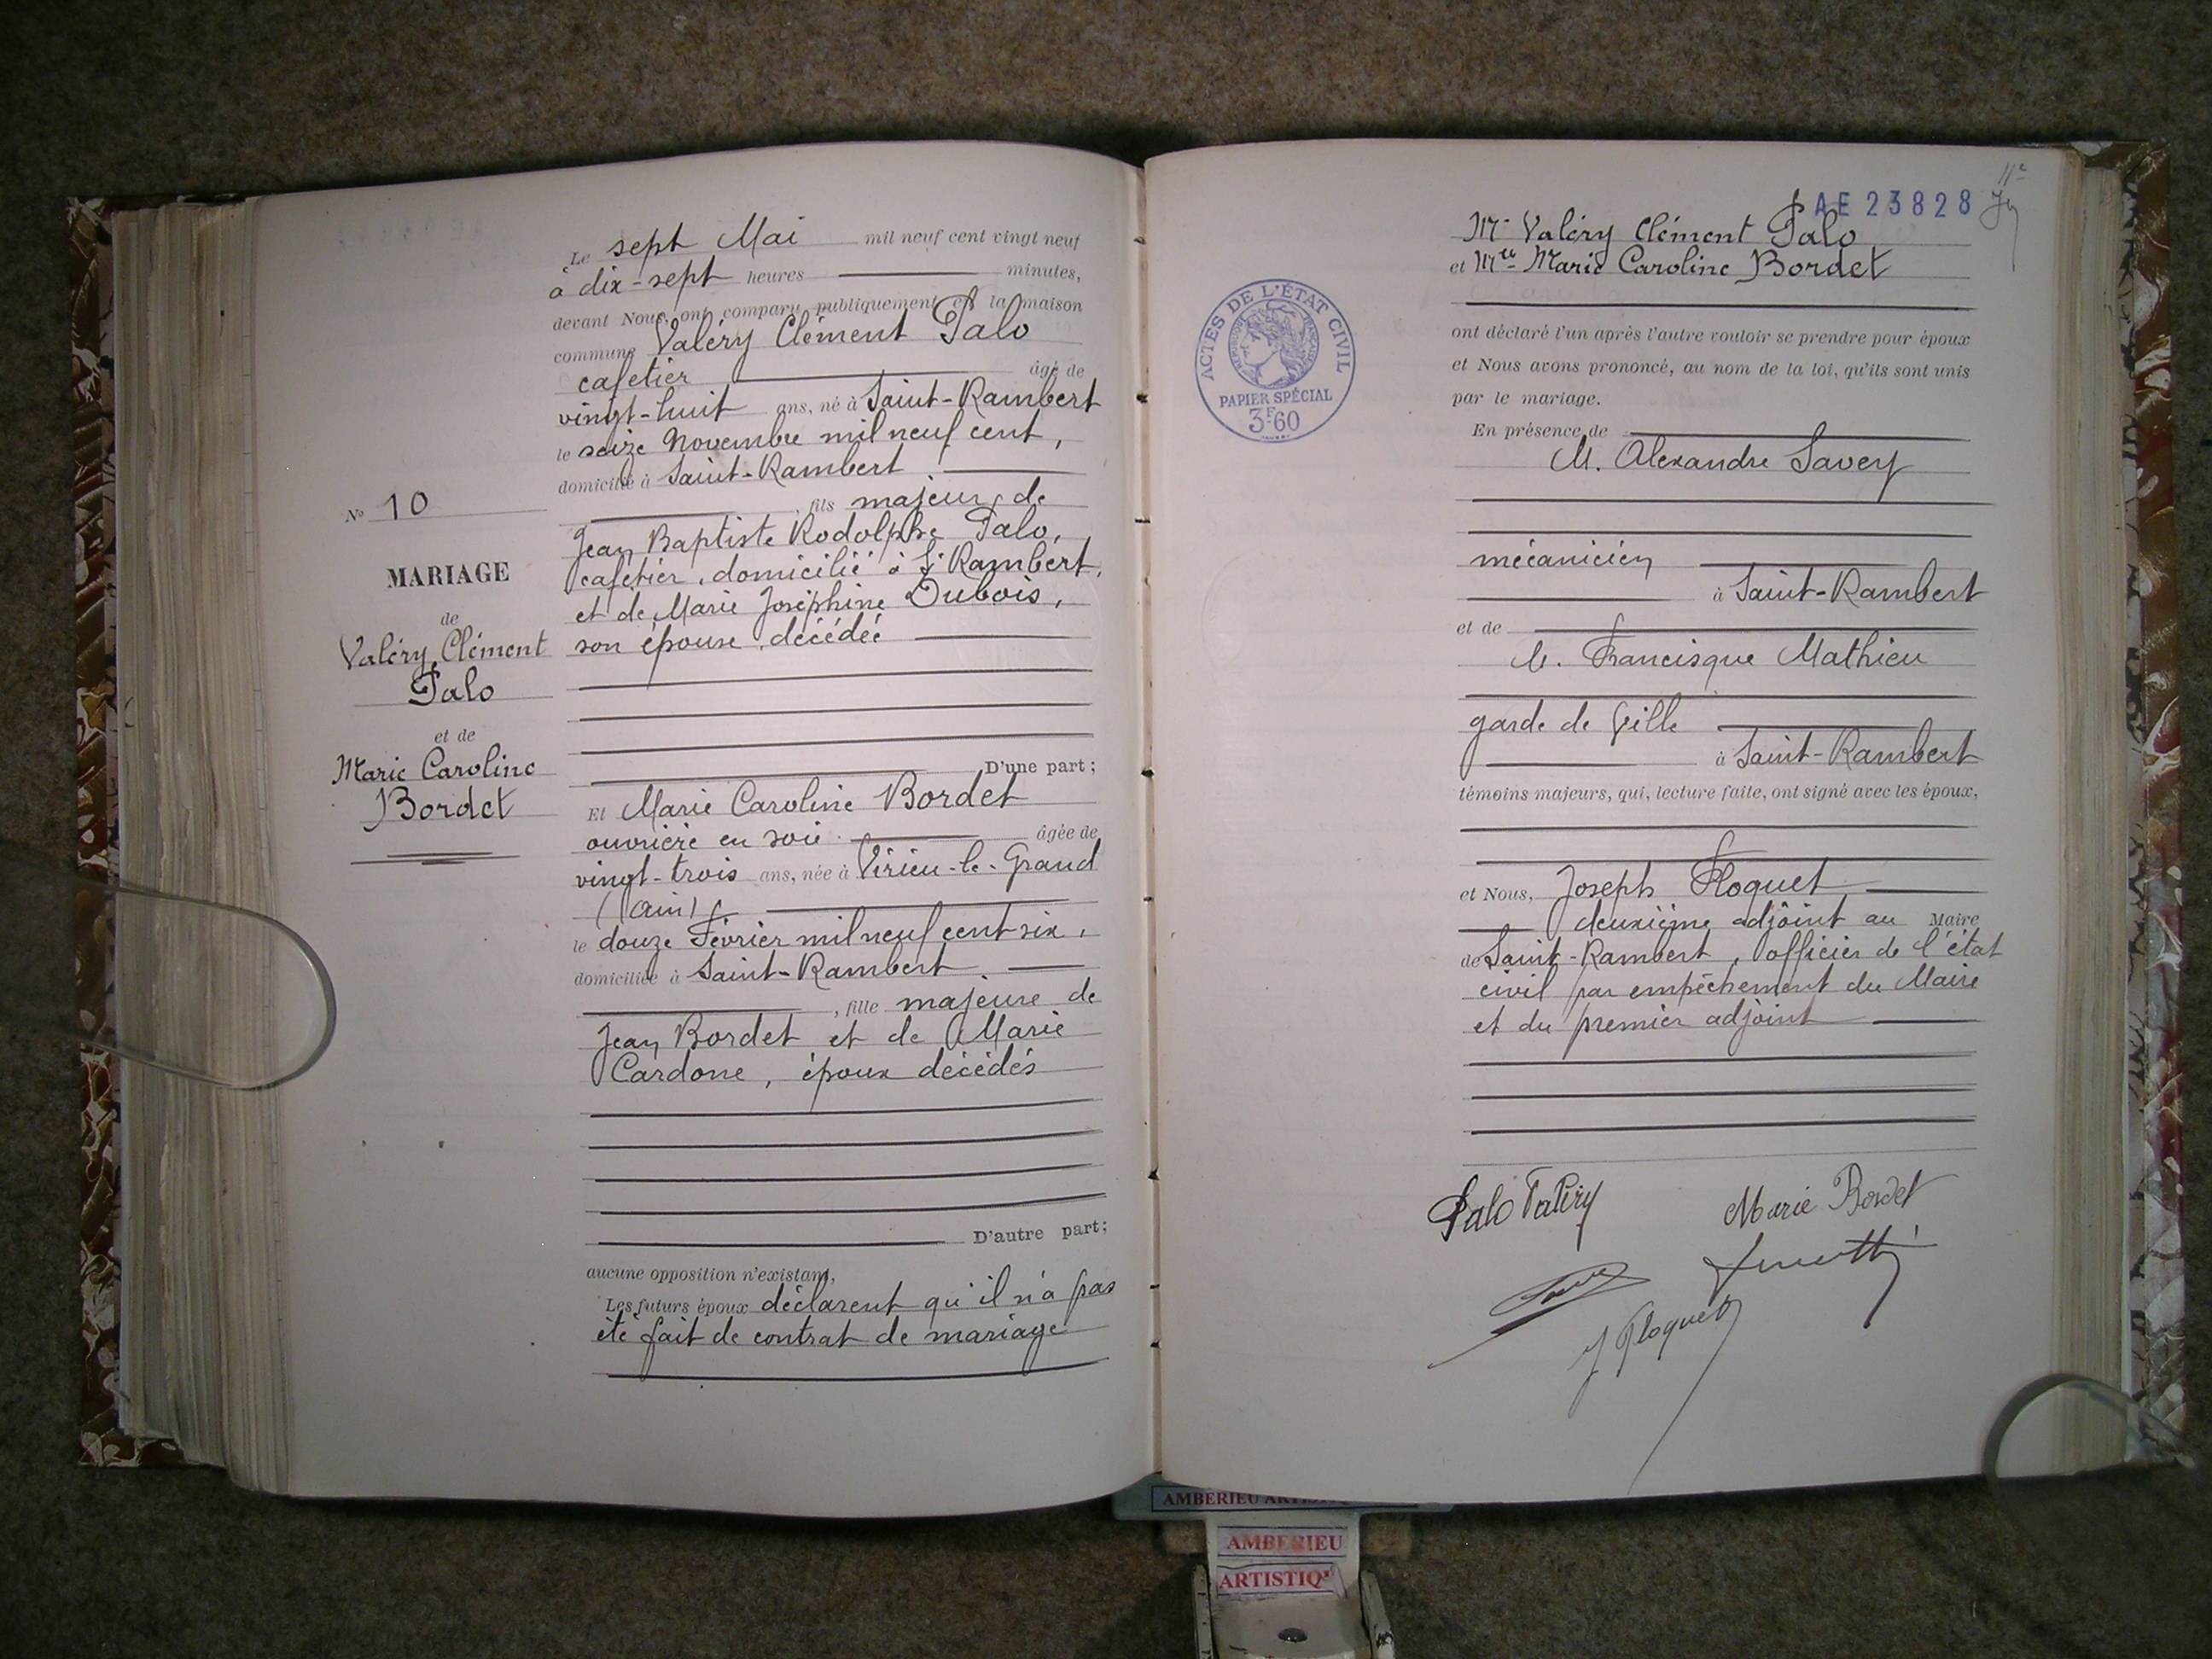 Le sept Mai mil neuf cent vingt neuf
à dix-sept heures minutes,
devant Nous, ont comparu publiquement en la maison
commune Valéry Clément Palo
cafetier âgé de
vingt-huit ans, né à Saint-Rambert
le seize Novembre mil neuf cent,
domicilié à Saint-Rambert
, fils majeur de
Jean Baptiste Rodolphe Palo,
cafetier, domicilié à St Rambert,
et de Marie Joséphine Dubois,
son épouse décédée
D'une part;
Nº 10
MARIAGE
de
Valéry Clément
Palo
et de
Marie Caroline
Bordet
Et Marie Caroline Bordet
ouvrière en soie âgée de
vingt-trois ans, née à Virieu-le-Grand
(Ain)
le douze Février mil neuf cent six,
domiciliée à Saint-Rambert
, fille majeure de
Jean Bordet et de Marie
Cardone, époux décédés
D'autre part;
aucune opposition n'existant,
Les futurs époux déclarent qu'il n'a pas
été fait de contrat de mariage
AE 23828
Mr Valéry Clément Palo
et Mlle Marie Caroline Bordet
ACTES DE L'ÉTAT CIVIL
RÉPUBLIQUE FRANÇAISE
PAPIER SPÉCIAL
3F60
ont déclaré l'un après l'autre vouloir se prendre pour époux
et Nous avons prononcé, au nom de la loi, qu'ils sont unis
par le mariage.
En présence de
M. Alexandre Savey
mécanicien
à Saint-Rambert
et de
M. Francisque Mathieu
garde de Ville
à Saint-Rambert
témoins majeurs, qui, lecture faite, ont signé avec les époux,
et Nous, Joseph Floquet
deuxième adjoint au Maire
de Saint-Rambert, officier de l'état
civil par empêchement du Maire
et du premier adjoint
Palo Valéry
Marie Bordet
J Floquet
AMBERIEU
AMBERIEU
ARTISTIQ